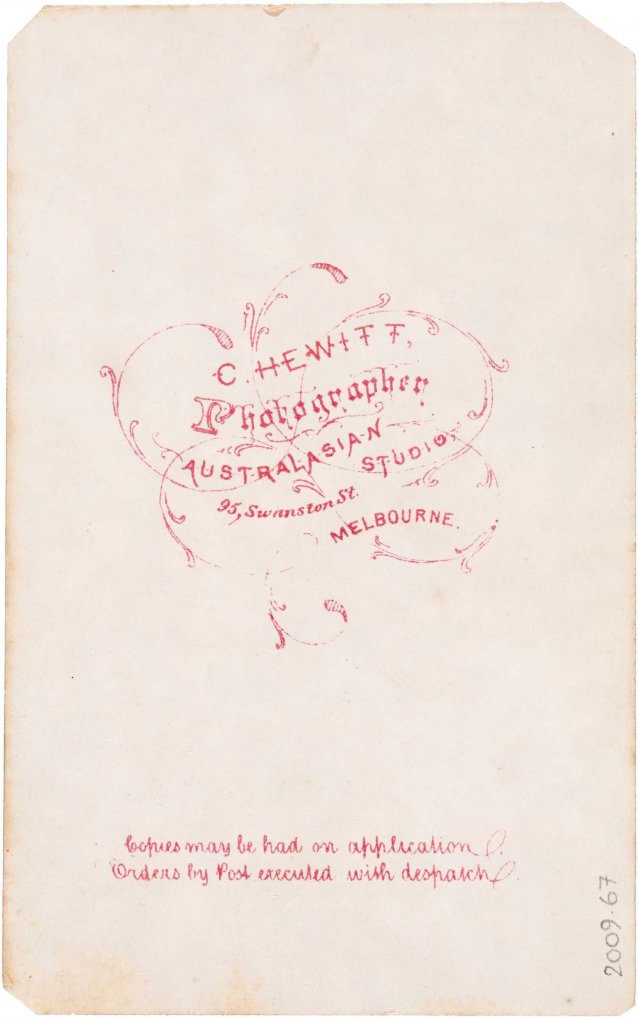 C. HEWITT,
Photographer
AUSTRALASIAN
STUDIO,
95, Swanston St.
MELBOURNE.
Copies may be had on application.
Orders by Post executed with despatch.
2009-67